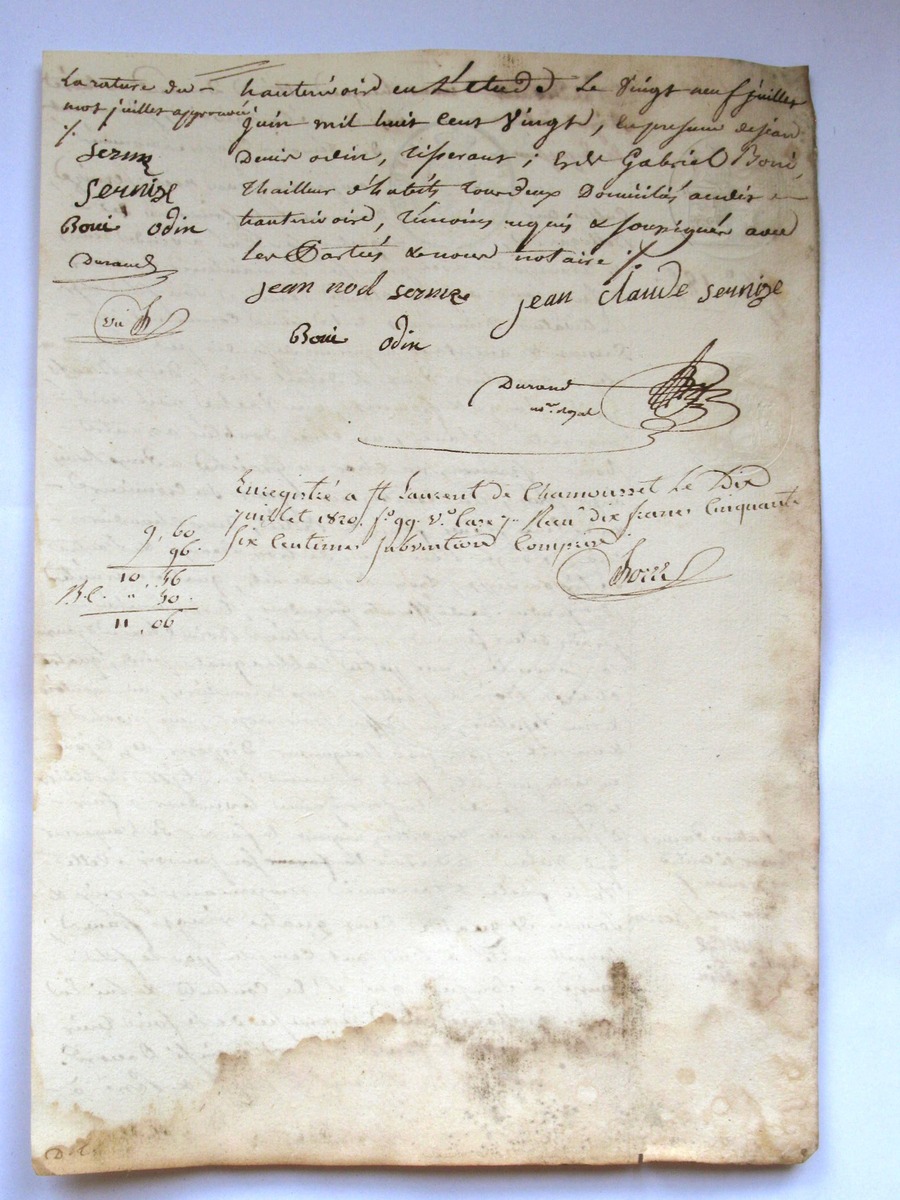 La rature du
mot juillet approuvée
serme
Sernize
Boui odin
Durand
Vu
hauterivoire en L'etude Le Vingt neuf juillet
juin mil huit cent Vingt, en presence de jean
Denis odin, tisserant ; & de Gabriel Boui,
thailleur d'habits tous deux Domiciliés audit
hauterivoire, témoins requis & soussignés avec
Les Parties & nous notaire ;/.
jean noel serme jean claude sernize
Boui odin
Durand
nre. royal
Enregistré a st Laurent de Chamousset Le Dix
juillet 1820. fo. 99. Vo. Case 7. Recu dix francs Cinquante
six Centimes subvention Comprise
9, 60
96.
10, 56
" 50.
11, 06